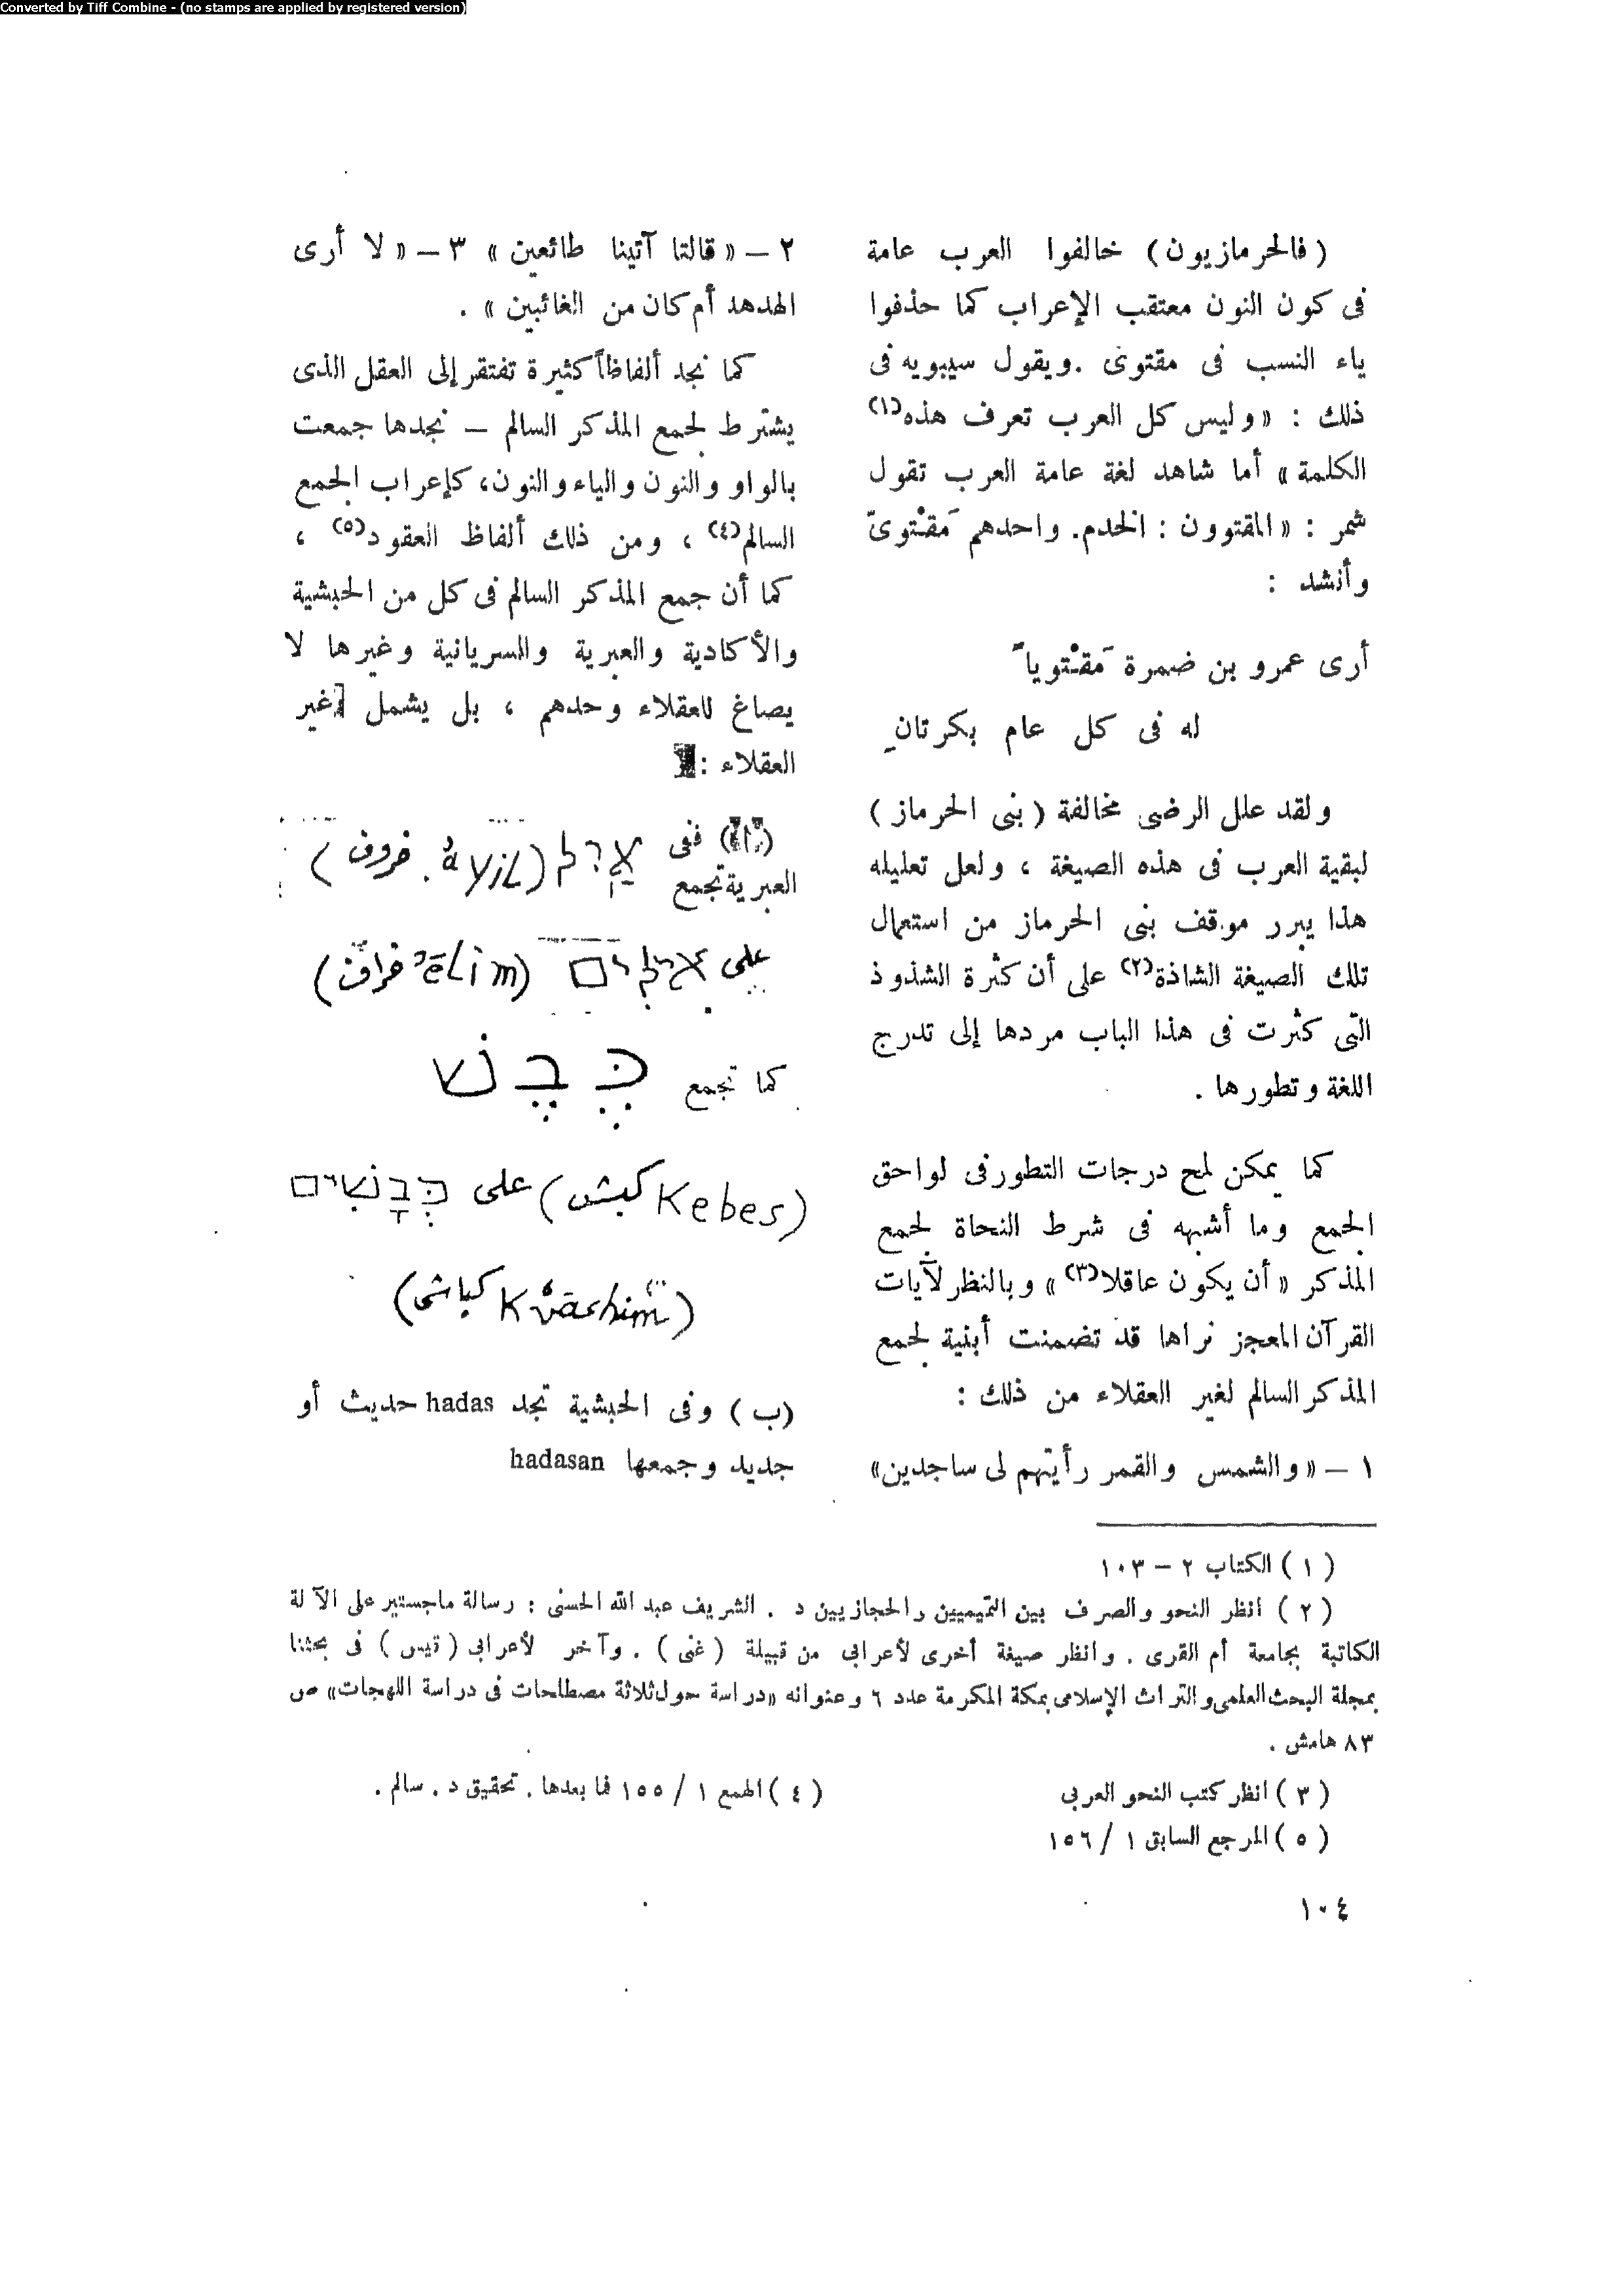 Converted by Tiff Combine - (no stamps are applied by registered version)
( فالحرمازيون ) خالفوا العرب عامة
فى كون النون معتقب الإعراب كما حذفوا
ياء النسب فى مقتوى . ويقول سيبويه فى
ذلك : « وليس كل العرب تعرف هذه(١)
الكلمة » أما شاهد لغة عامة العرب تقول
شمر : « المقتوون : الخدم. واحدهم مَقْتوىّ
وأنشد :
أرى عمرو بن ضمرة مَقْتوياً
له فى كل عام بكرتانِ
ولقد علل الرضى مخالفة ( بنى الحرماز )
لبقية العرب فى هذه الصيغة ، ولعل تعليله
هذا يبرر موقف بنى الحرماز من استعمال
تلك الصيغة الشاذة(٢) على أن كثرة الشذوذ
التى كثرت فى هذا الباب مردها إلى تدرج
اللغة وتطورها .
كما يمكن لمح درجات التطور فى لواحق
الجمع وما أشبهه فى شرط النحاة لجمع
المذكر « أن يكون عاقلا(٣) » وبالنظر لآيات
القرآن المعجز نراها قد تضمنت أبنية لجمع
المذكر السالم لغير العقلاء من ذلك :
١ – « والشمس والقمر رأيتهم لى ساجدين »
٢ – « قالتا آتينا طائعين » ٣ – « لا أرى
الهدهد أم كان من الغائبين » .
كما نجد ألفاظاً كثيرة تفتقر إلى العقل الذى
يشترط لجمع المذكر السالم – نجدها جمعت
بالواو والنون والياء والنون، كإعراب الجمع
السالم(٤) ، ومن ذلك ألفاظ العقود(٥) ،
كما أن جمع المذكر السالم فى كل من الحبشية
والأكادية والعبرية والسريانية وغيرها لا
يصاغ للعقلاء وحدهم ، بل يشمل غير
العقلاء :
(أ) ففى
العبرية تجمع ( خروف )
على ( خراف ēlim)
كما تجمع כֶּבֶשׂ
(Kebes كبش) على כְּבָשׂים
(Kvāshim كباش)
(ب) وفى الحبشية تجد hadas حديث أو
جديد وجمعها hadasan
( ١ ) الكتاب ٢ – ١٠٣
( ٢ ) انظر النحو والصرف بين التميميين والحجازيين د . الشريف عبد الله الحسنى : رسالة ماجستير على الآلة
الكاتبة بجامعة أم القرى . وانظر صيغة أخرى لأعرابى من قبيلة ( غنى ) . وآخر لأعرابى ( قيس ) فى بحثنا
بمجلة البحث العلمى والتراث الإسلامى بمكة المكرمة عدد ٦ وعنوانه «دراسة حول ثلاثة مصطلحات فى دراسة اللهجات» ص
٨٣ هامش .
( ٣ ) انظر كتب النحو العربى ( ٤ ) الهمع ١ / ١٥٥ فما بعدها . تحقيق د . سالم .
( ٥ ) المرجع السابق ١ / ١٥٦
١٠٤